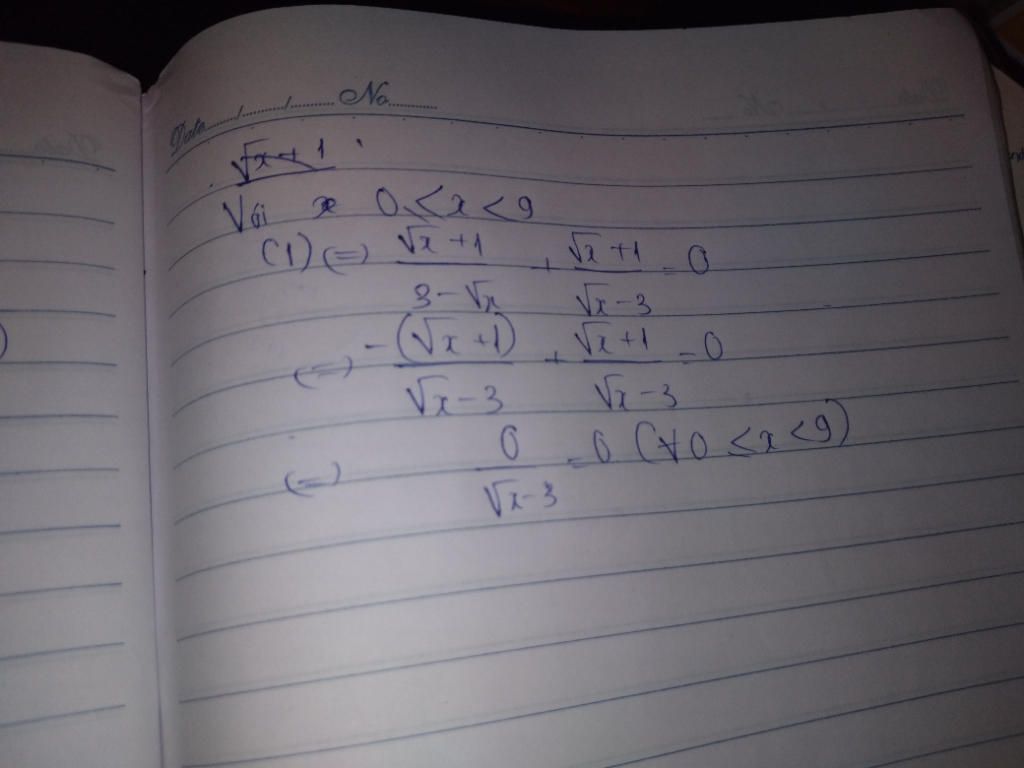 Date....../....../......... No...........
√x + 1
Với x 0 ≤ x < 9
(1) (=) (√x + 1)/(3 - √x) + (√x + 1)/(√x - 3) = 0
(=) -(√x + 1)/(√x - 3) + (√x + 1)/(√x - 3) = 0
(=) 0/(√x - 3) = 0 (∀ 0 ≤ x < 9)
)